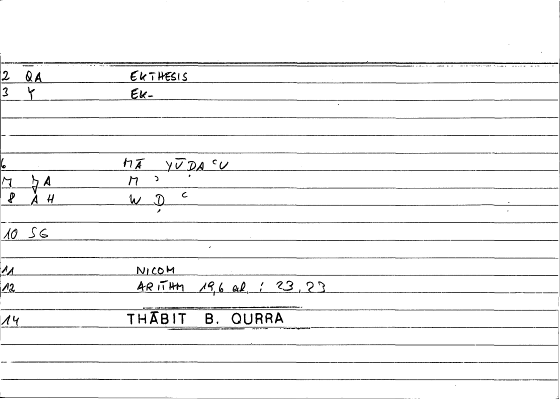 2 QA EKTHESIS
3 Y EK-
6 MĀ YŪḌAʿU
M ʾ
8 AH W Ḍ ʿ
10 SG
11 NICOM
12 ARITHM 19,6 al. : 23,23
14 THĀBIT B. QURRA